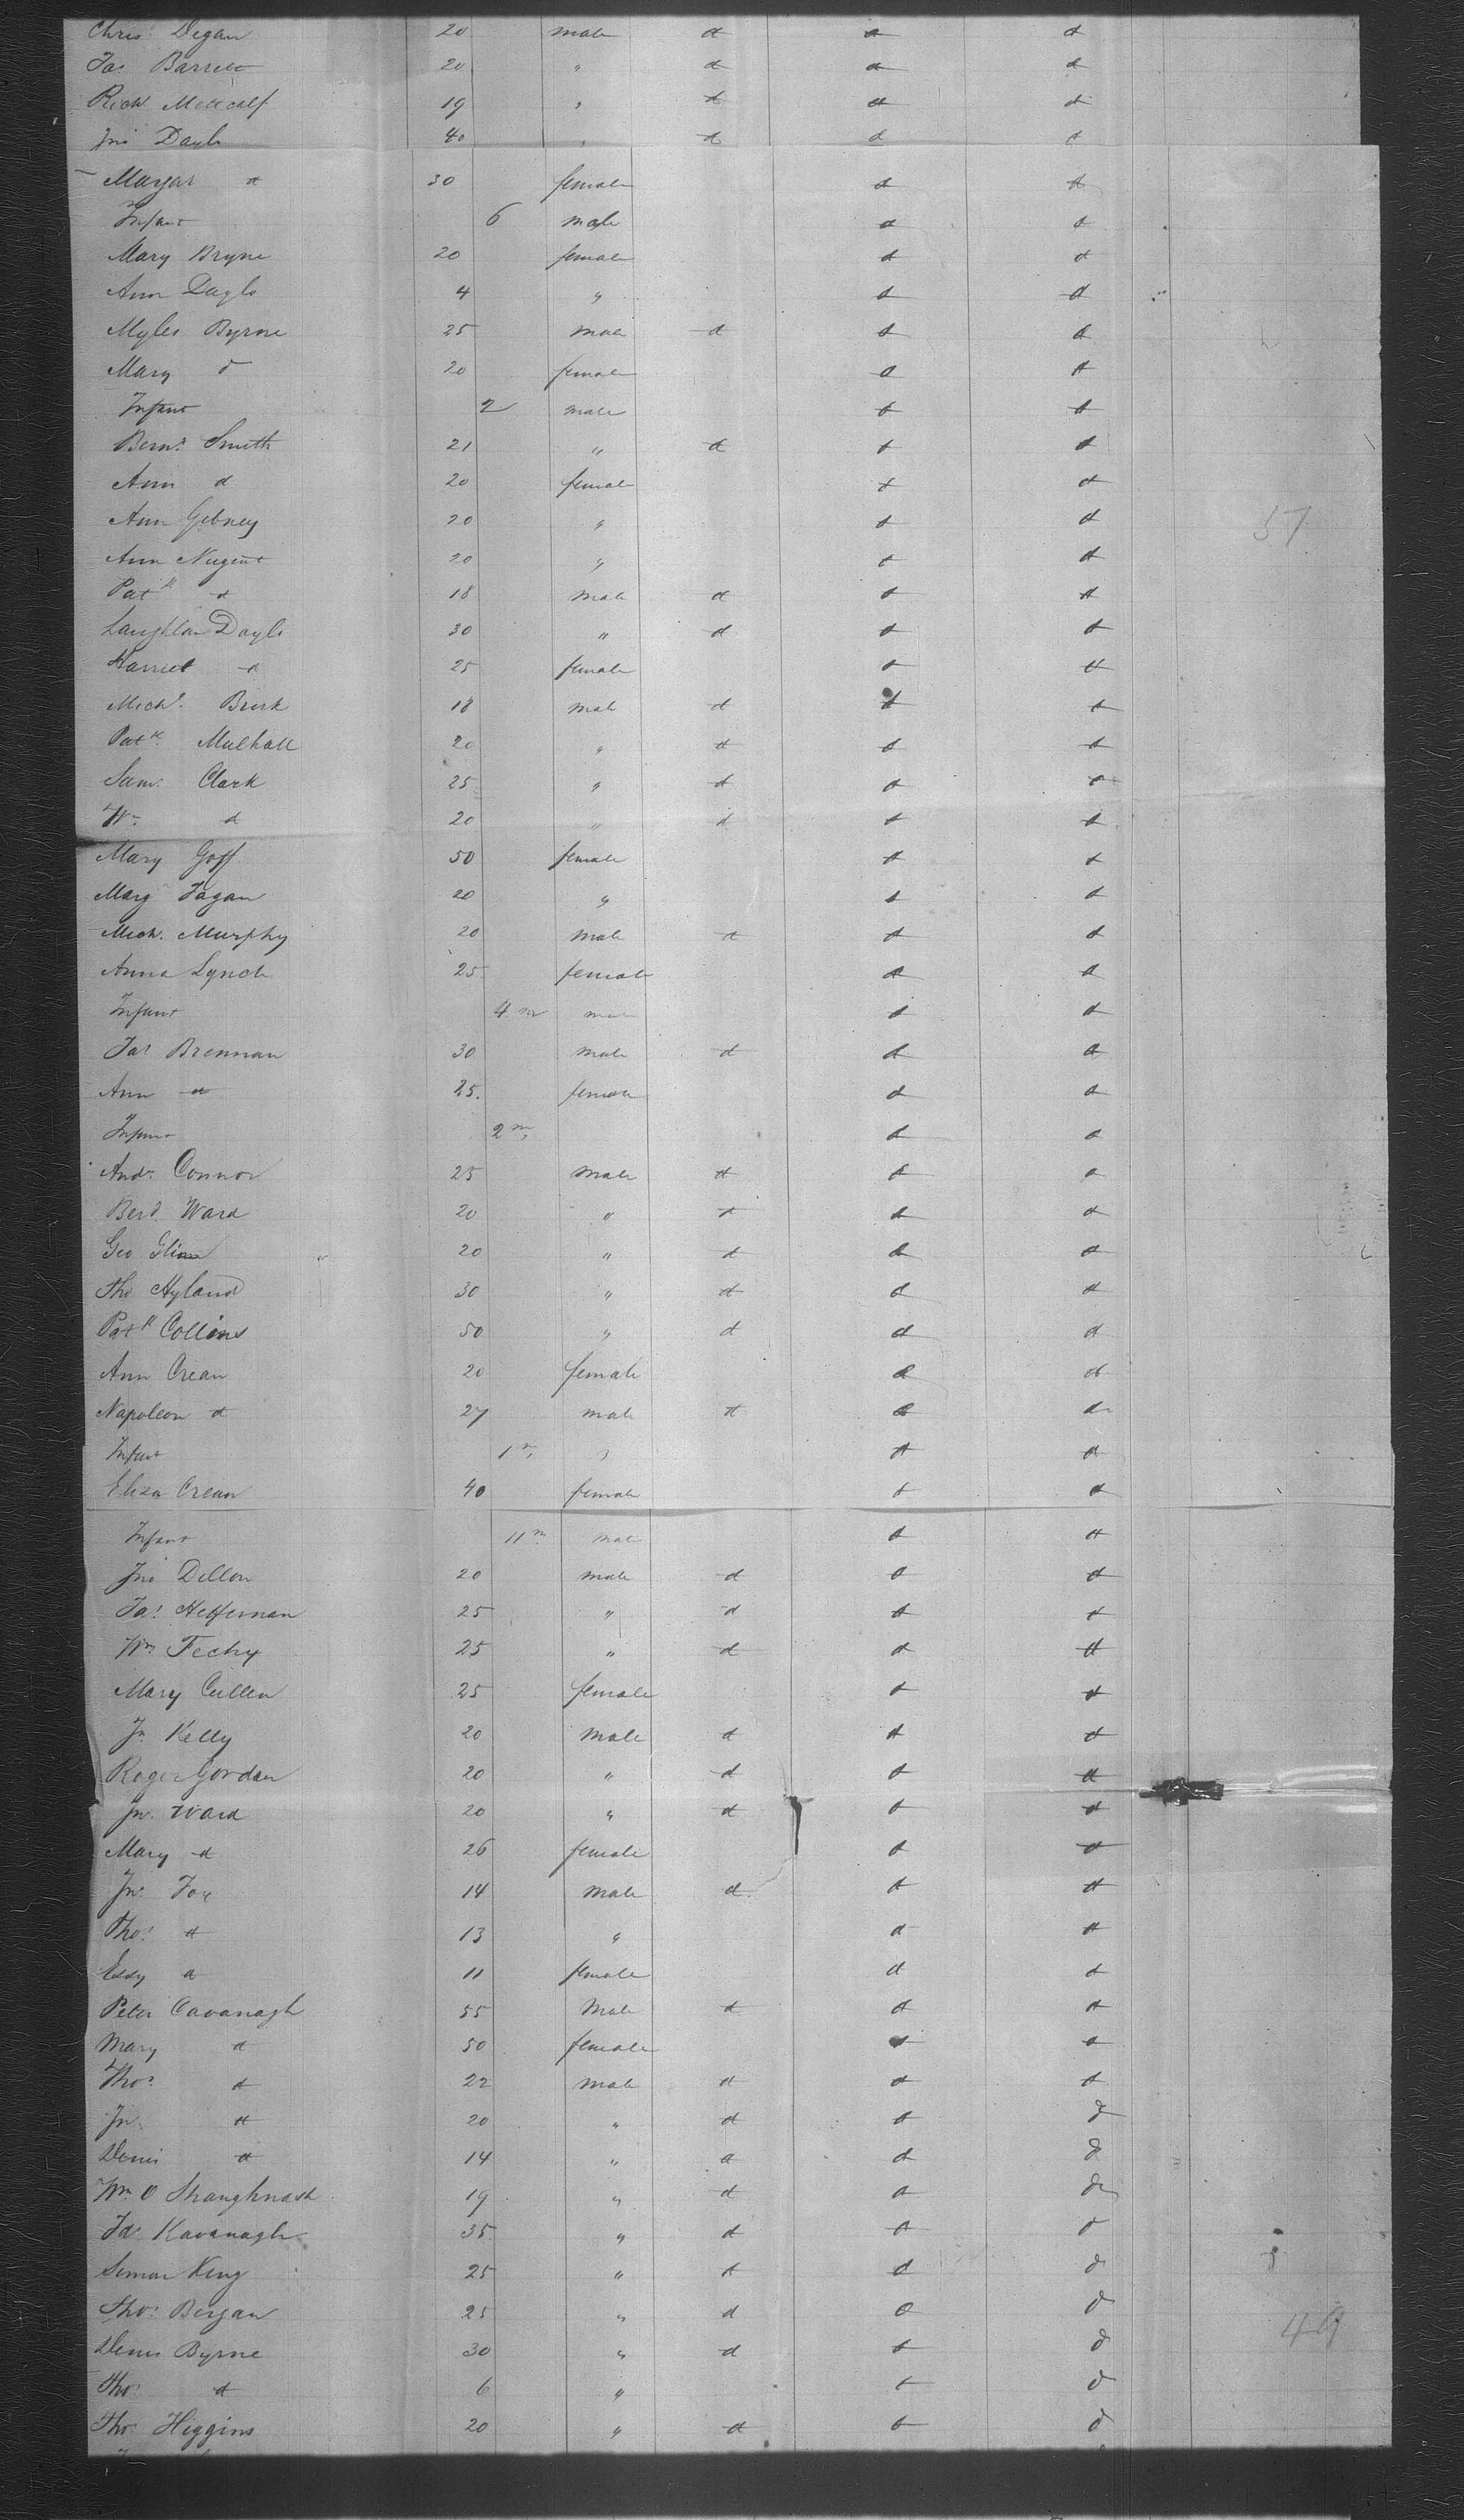 Chris Degan 20 male d d d
Jas Barrett 20 " d d d
Richd Metcalf 19 " d d d
Jno Doyle 40 " d d d
Margar d 30 female d d
Infant 6 male d d
Mary Bryne 20 female d d
Ann Doyle 4 " d d
Myles Byrne 25 male d d d
Mary d 20 female d d
Infant 2 male d d
Bernd Smith 21 " d d d
Ann d 20 female d d
Ann Gebney 20 " d d 57
Ann Nugent 20 " d d
Patk d 18 male d d d
Laughlan Doyle 30 " d d d
Harriet d 25 female d d
Michl Burk 18 male d d d
Patk Mulhall 20 " d d d
Saml Clark 25 " d d d
Wm d 20 " d d d
Mary Goff 50 female d d
Mary Fagan 20 " d d
Mich. Murphy 20 male d d d
Anna Lynch 25 female d d
Infant 4 m male d d
Jas Brennan 30 male d d d
Ann d 25. female d d
Infant 2 m d d
Andw Connor 25 male d d d
Berd Ward 20 " d d d
Geo Glinn 20 " d d d
Tho Hyland 30 " d d d
Patk Collins 50 " d d d
Ann Crean 20 female d d
Napoleon d 27 male d d d
Infant 1 m " d d
Eliza Crean 40 female d d
Infant 11 m male d d
Jno Dillon 20 male d d d
Jas Heffernan 25 " d d d
Wm Feehy 25 " d d d
Mary Cullen 25 female d d
Jn Kelly 20 male d d d
Roger Gordan 20 " d d d
Jn. Ward 20 " d d d
Mary d 26 female d d
Jn. Fox 14 male d d d
Thos d 13 " d d
Essy d 11 female d d
Peter Cavanagh 55 Male d d d
Mary d 50 female d d
Thos d 22 male d d d
Jn d 20 " d d d
Denis d 14 " d d d
Wm O Shaughnash 19 " d d d
Jas Kavanagh 35 " d d d
Simon King 25 " d d d
Thos Bergan 25 " d d d
Denis Byrne 30 " d d d 49
Thos d 6 " d d
Thos Higgins 20 " d d d